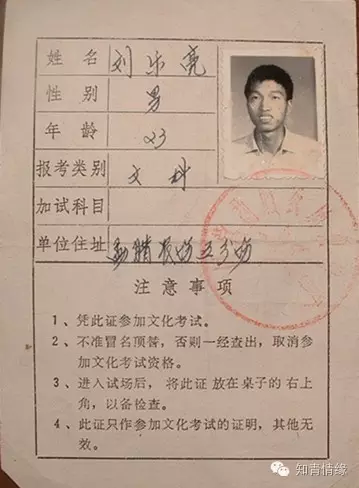 姓名 刘乐亮
性别 男
年龄 23
报考类别 文科
加试科目
单位住址 农场五分场
注意事项
1、凭此证参加文化考试。
2、不准冒名顶替，否则一经查出，取消参
加文化考试资格。
3、进入试场后，将此证放在桌子的右上
角，以备检查。
4、此证只作参加文化考试的证明，其他无
效。
知青情缘